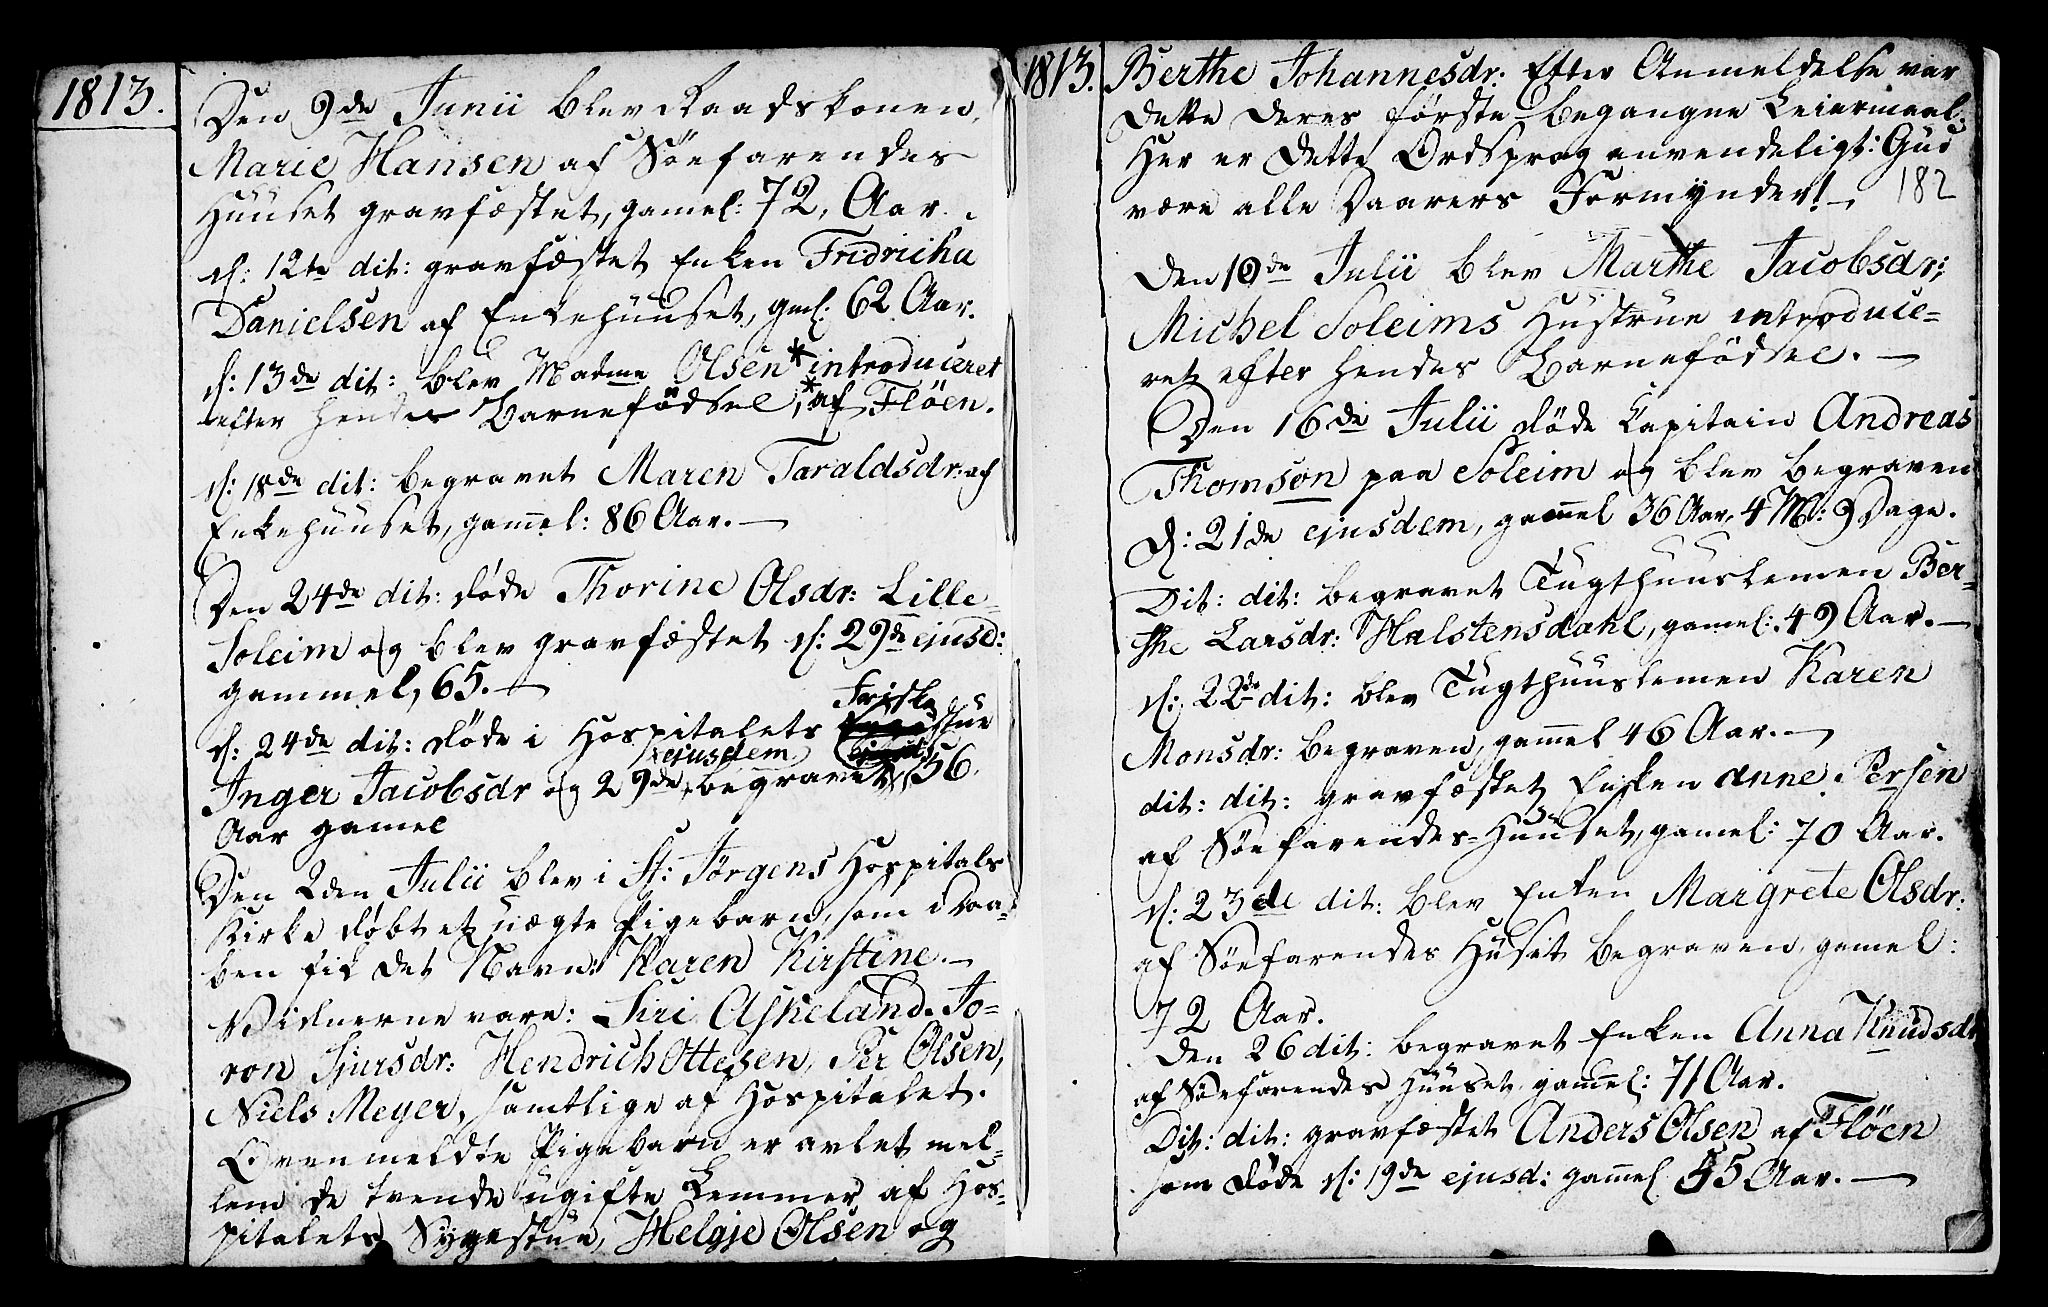 1813.
Den 9de Junii blev Raadskonen,
Marie Hansen af Söefarendes
Huuset gravfæstet, gamel: 72, Aar.
d: 12te dit: gravfæstet Enken Fridricha
Danielsen af Enkehuuset, gml: 62 Aar.
d: 13de dit: blev Madme Olsen * introduceret
efter hendes Barnefödsel, * af Flöen.
d: 18de dit: begravet Maren Taraldsdr: af
Enkehuuset, gam̄el: 86 Aar. —
Den 24de dit: døde Thorine Olsdr: Lille-
Soleim og blev gravfæstet d: 29de ejusd:
gammel, 65. —
Friske
d: 24de dit: døde i Hospitalets stue
ejusdem
Inger Jacobsdr og 29de begravet, 56.
Aar gamel
Den 2den Julii blev i St: Jörgens Hospitals
Kirke døbt et uægte Pigebarn, som i Daa-
ben fik det Navn: Karen Kirstine. —
Vidnerne vare: Siri Askeland. To-
ron Sjursdr: Hendrich Ottesen, Per Olsen,
Niels Meyer, samtlige af Hospitalet.
Ovenmeldte Pigebarn er avlet mel-
lem de tvende ugifte Lemmer af Hos-
pitalets Sygestue, Helgje Olsen og
1813.
Berthe Johannesdr: Efter Anmeldelse var
dette deres første begangne Leiermaal.
Her er dette Ordsprog anvendeligt: Gud
være alle Daarers Formynder! —
182
Den 10de Julii blev Marthe Jacobsdr;
Michel Soleims Hustrue introduce-
ret efter hendes Barnefödsel. —
Den 16de Julii döde Capitain Andreas
Thomson paa Soleim og blev begraven
d: 21de ejusdem, gam̄el 36 Aar, 4 M: 9 Dage.
Dit: dit: begravet Tugthuuslemen Ber-
the Larsdr: Halstensdahl, gamel: 49 Aar. —
d: 22de dit: blev Tugthuuslemen Karen
Monsdr: begraven, gam̄el 46 Aar. —
dit: dit: gravfæstet Enken Anne Persen
af Söefarendes-Huuset, gamel: 70 Aar.
d: 23de dit: blev Enken Margrete Olsdr:
af Söefarendes Huset begraven, gamel:
72 Aar.
Den 26 dit: begravet Enken Anna Knudsdr
af Söefarendes Huuset gam̄el: 71 Aar.
Dit: dit: gravfæstet Anders Olsen af Flöen
som døde d: 19de ejusd: gam̄el 55 Aar. —